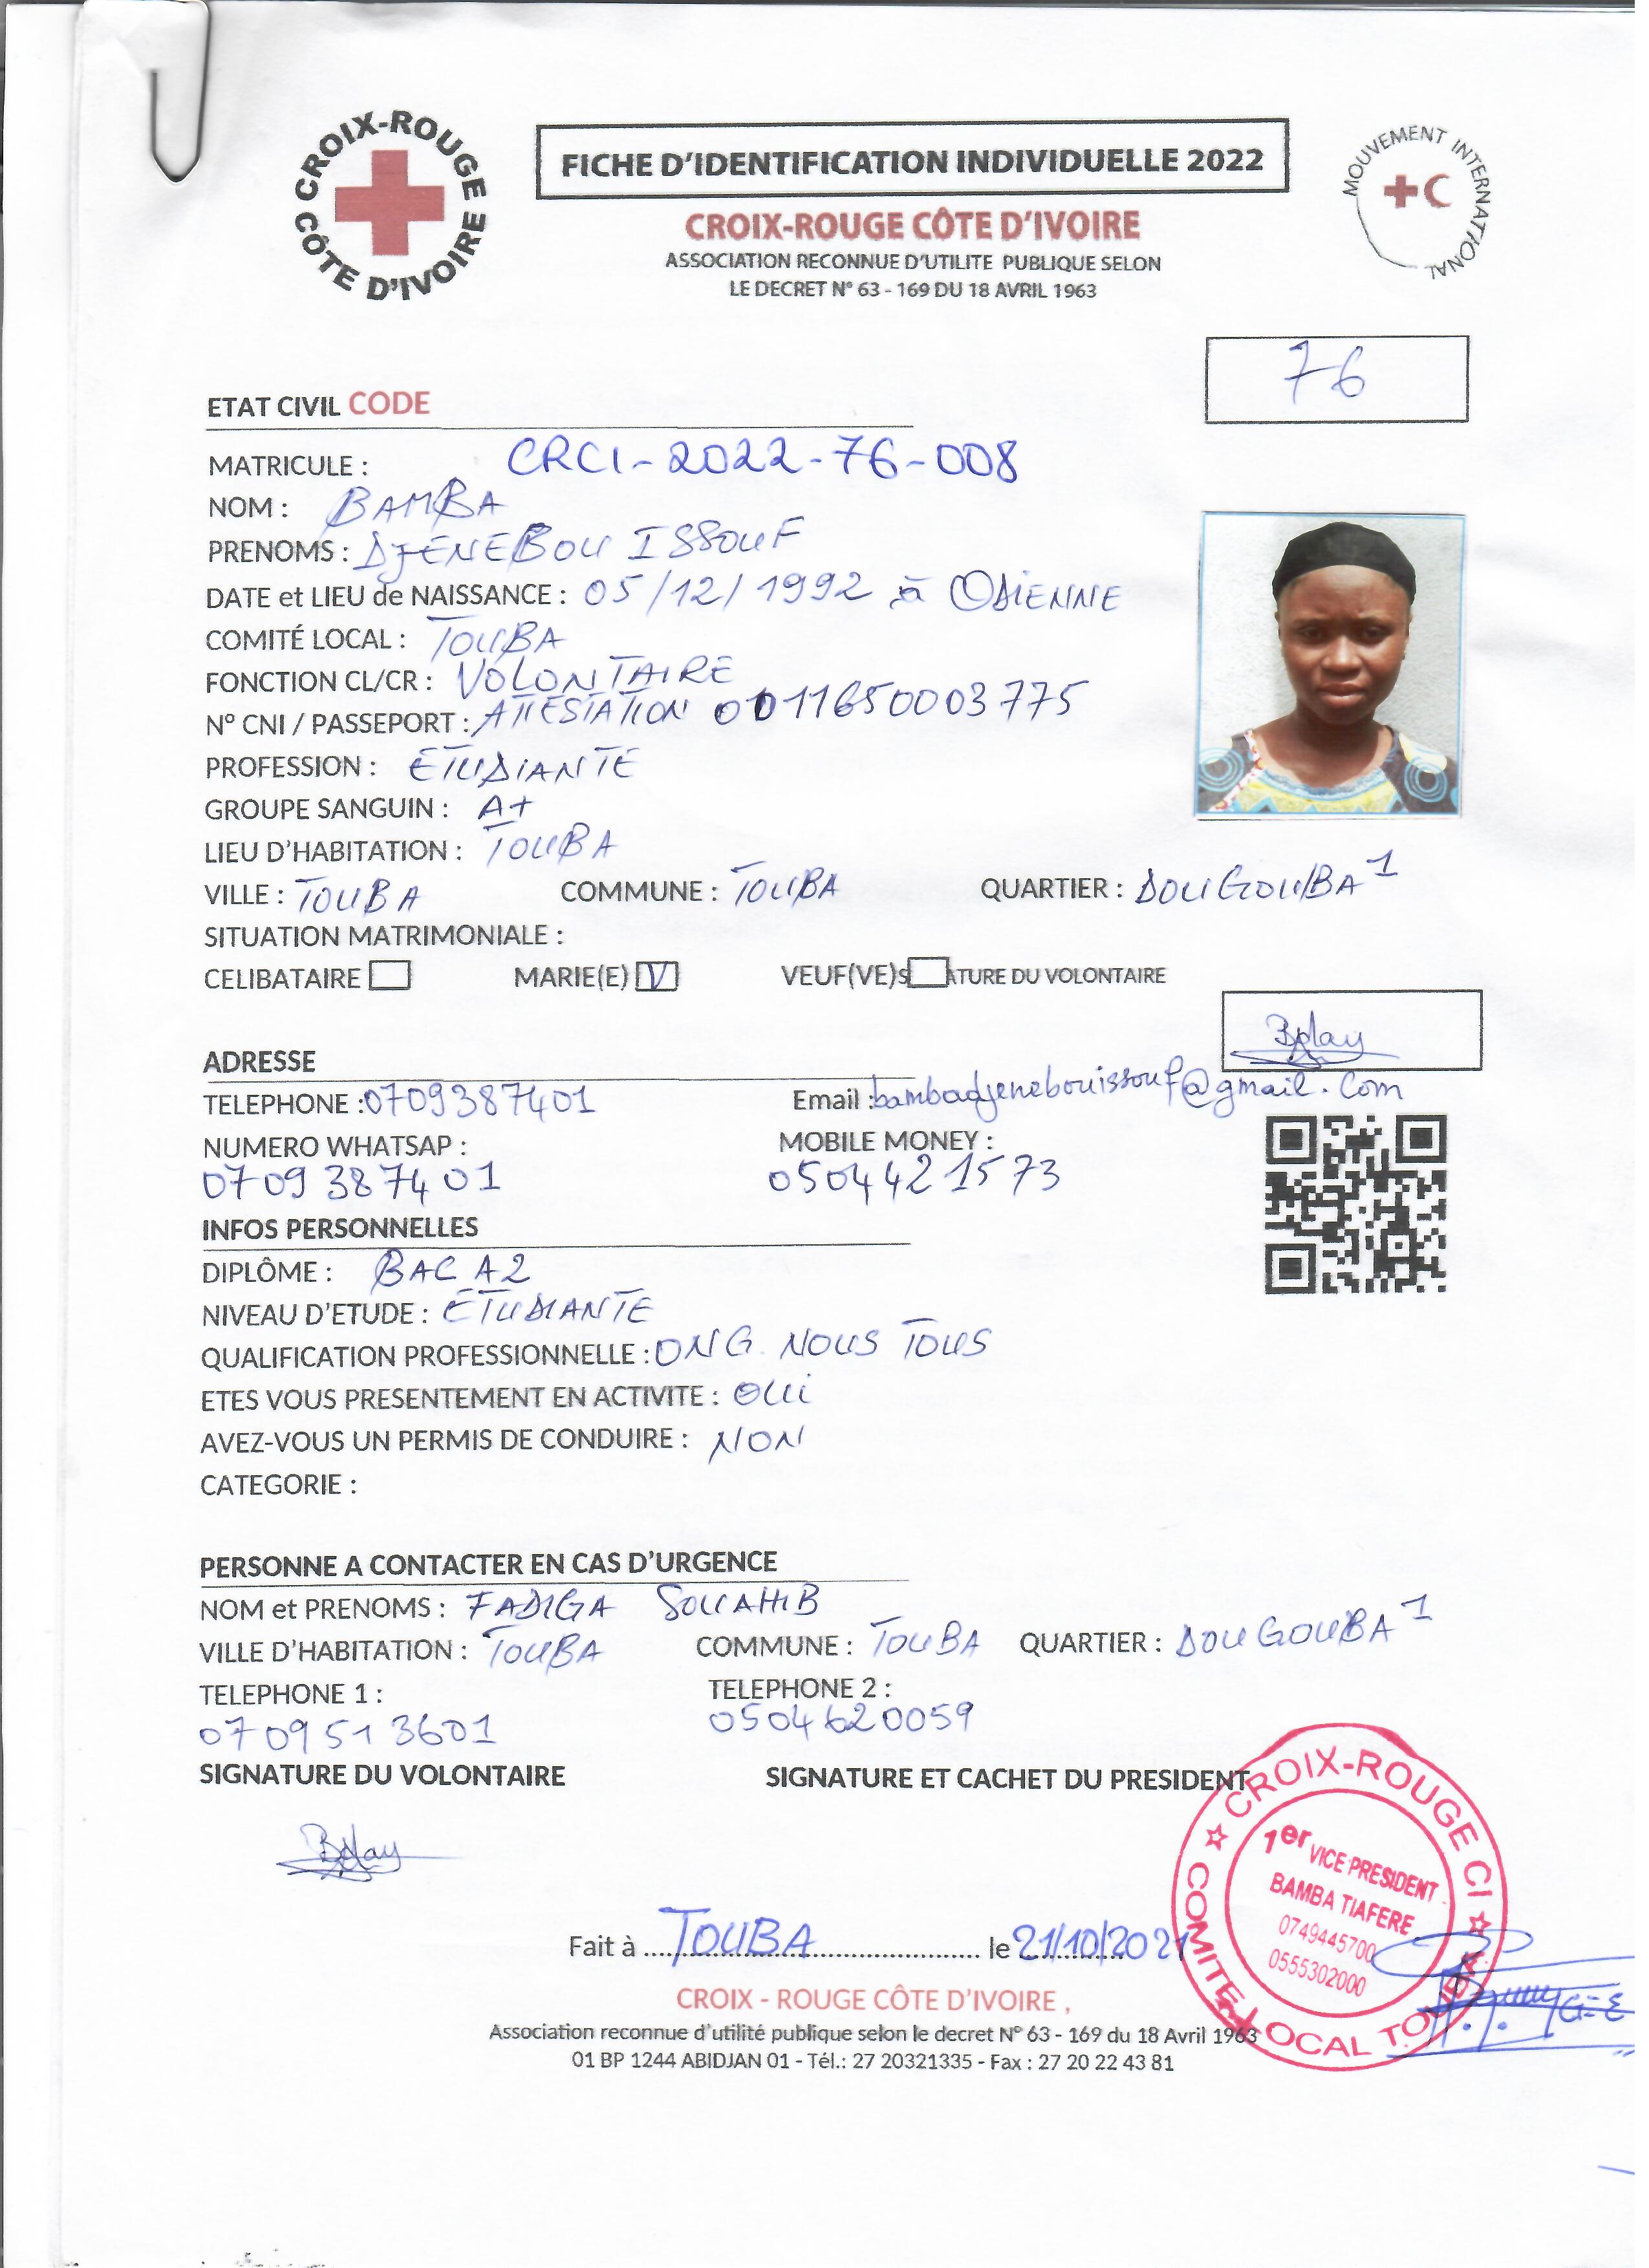 CROIX-ROUGE CÔTE D'IVOIRE
FICHE D'IDENTIFICATION INDIVIDUELLE 2022
MOUVEMENT INTERNATIONAL
CROIX-ROUGE CÔTE D'IVOIRE
ASSOCIATION RECONNUE D'UTILITE PUBLIQUE SELON
LE DECRET N° 63 - 169 DU 18 AVRIL 1963
76
ETAT CIVIL CODE
MATRICULE : CRCI-2022-76-008
NOM : BAMBA
PRENOMS : DJENEBOU ISSOUF
DATE et LIEU de NAISSANCE : 05/12/1992 à ODIENNE
COMITÉ LOCAL : TOUBA
FONCTION CL/CR : VOLONTAIRE
N° CNI / PASSEPORT : ATTESTATION 0011650003775
PROFESSION : ETUDIANTE
GROUPE SANGUIN : A+
LIEU D'HABITATION : TOUBA
VILLE : TOUBA COMMUNE : TOUBA QUARTIER : DOUGOUBA 1
SITUATION MATRIMONIALE :
CELIBATAIRE MARIE(E) V VEUF(VE) S ATURE DU VOLONTAIRE
ADRESSE
TELEPHONE : 0709387401 Email : bambadjenebouissouf@gmail.com
NUMERO WHATSAP : MOBILE MONEY :
0709387401 0504421573
INFOS PERSONNELLES
DIPLÔME : BAC A2
NIVEAU D'ETUDE : ETUDIANTE
QUALIFICATION PROFESSIONNELLE : ONG NOUS TOUS
ETES VOUS PRESENTEMENT EN ACTIVITE : OUi
AVEZ-VOUS UN PERMIS DE CONDUIRE : NON
CATEGORIE :
PERSONNE A CONTACTER EN CAS D'URGENCE
NOM et PRENOMS : FADIGA SOUAHIB
VILLE D'HABITATION : TOUBA COMMUNE : TOUBA QUARTIER : DOUGOUBA 1
TELEPHONE 1 : TELEPHONE 2 :
0709513601 0504620059
SIGNATURE DU VOLONTAIRE SIGNATURE ET CACHET DU PRESIDENT
CROIX-ROUGE CI
COMITE LOCAL TOUBA
1er VICE PRESIDENT
BAMBA TIAFERE
0749445700
0555302000
Fait à TOUBA le 21/10/2021
CROIX - ROUGE CÔTE D'IVOIRE ,
Association reconnue d'utilité publique selon le decret N° 63 - 169 du 18 Avril 1963
01 BP 1244 ABIDJAN 01 - Tél.: 27 20321335 - Fax : 27 20 22 43 81